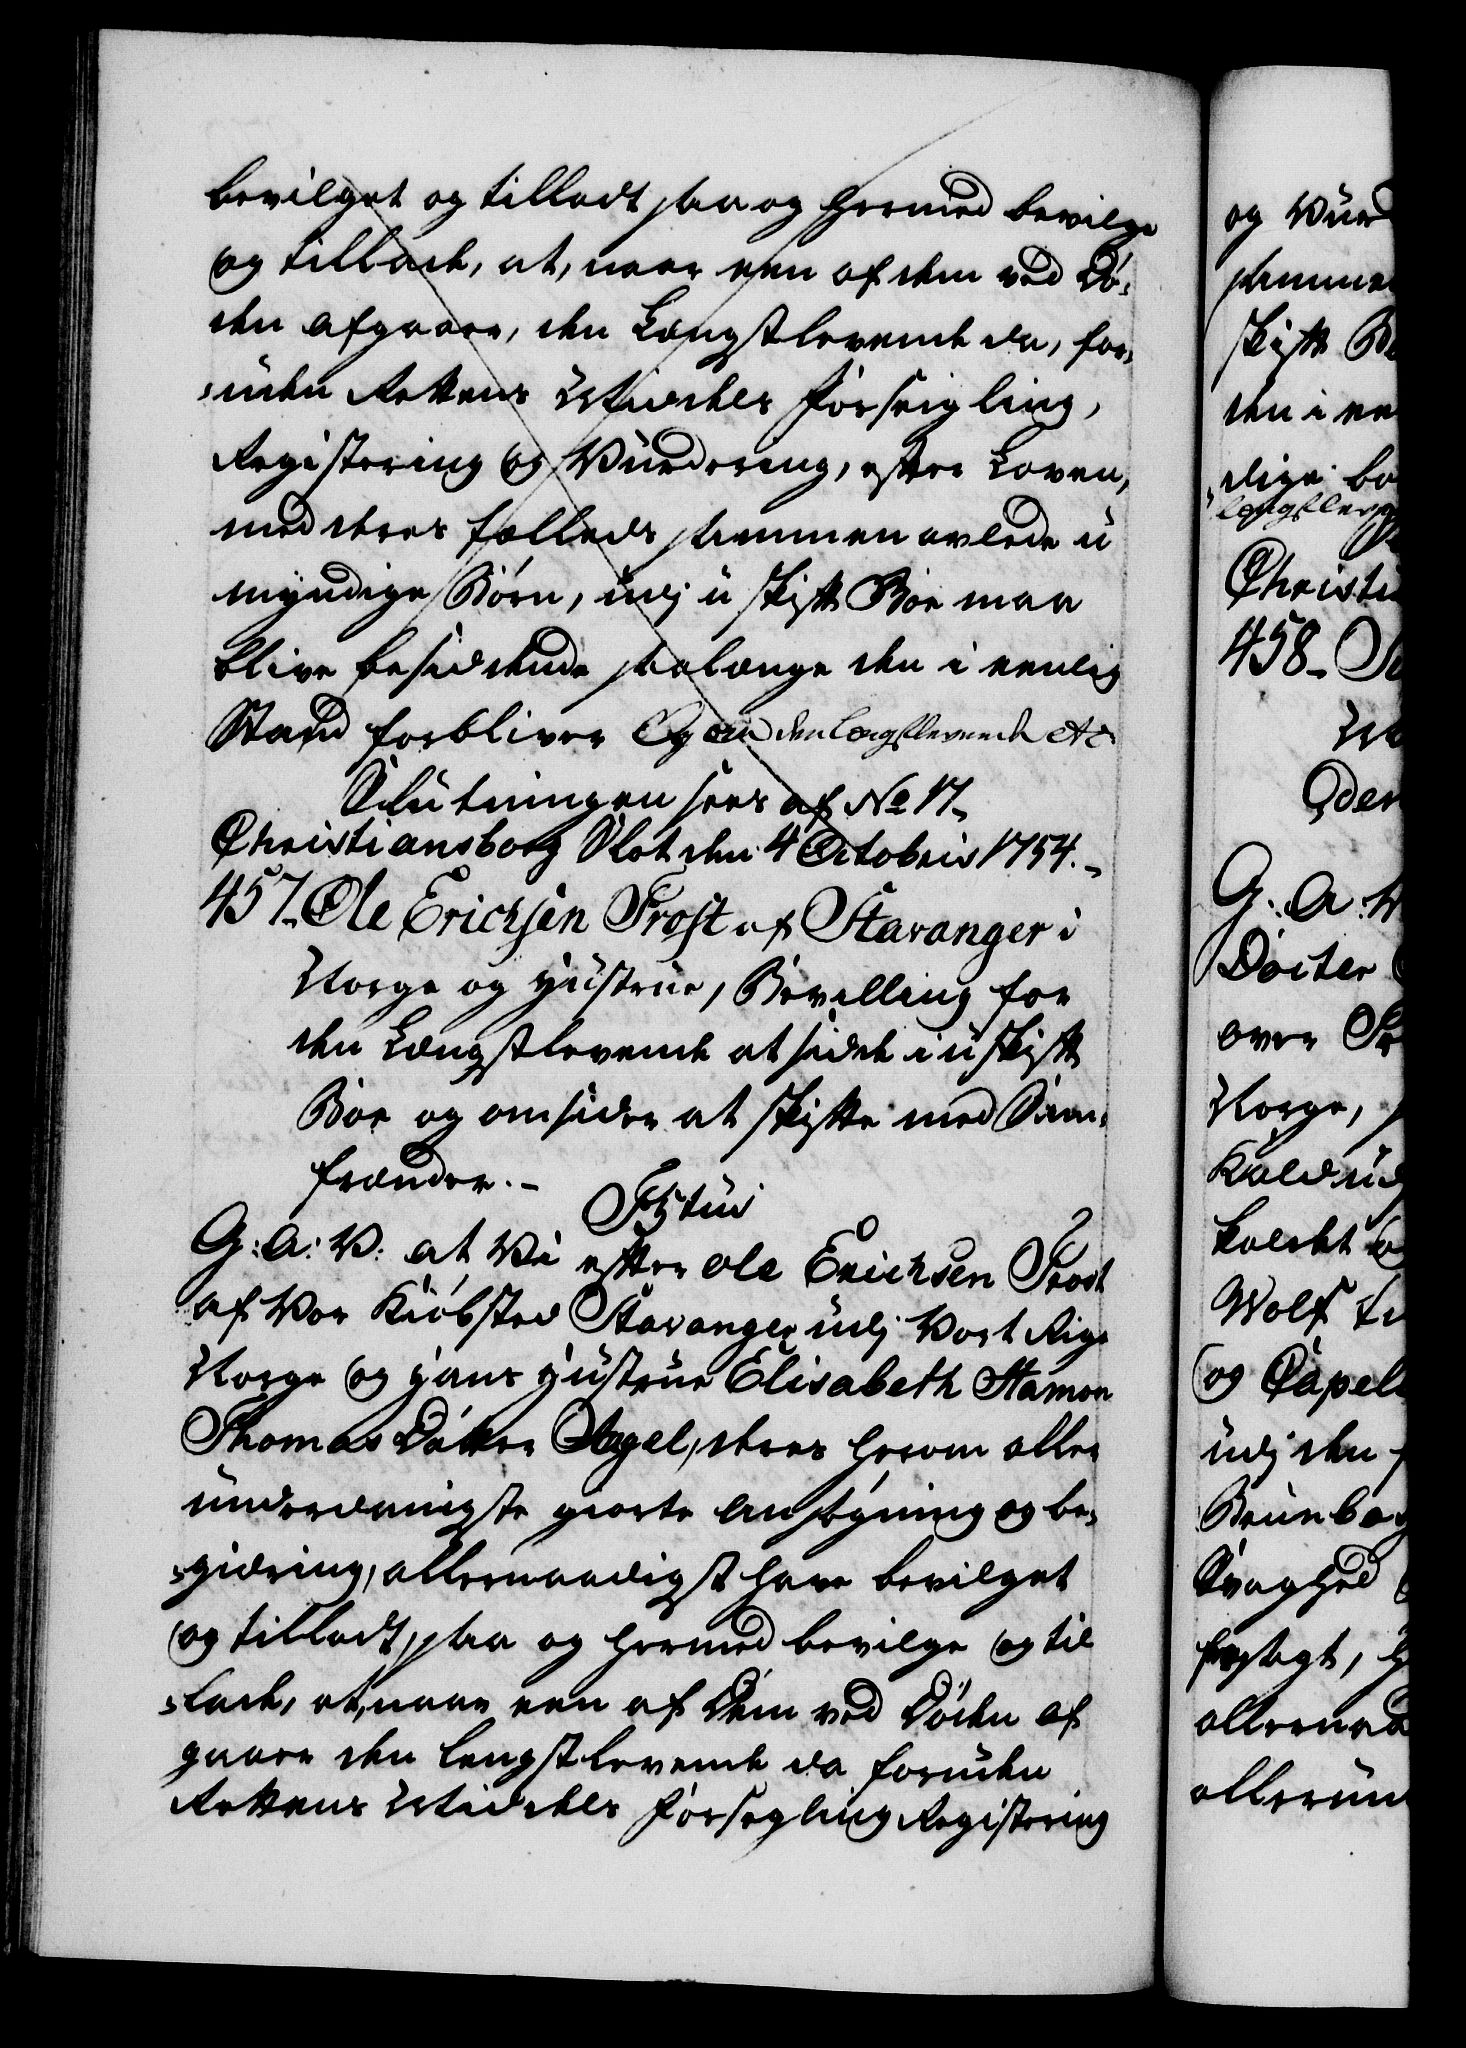 bevilget og tilladt saa og hermed bevilge
og tillade, at, naar een af dem ved Dø-
den afgaaer, den Længstlevende da, for-
uden Rettens Middels Forseigling,
Registering og Vurdering, efter Loven,
med deres fælleds sammen avlede u
myndige Børn, udj u skifft Boe maa
blive besiddende saalænge den i eenlig
Stand forbliver Og om den længstlevende etc
Slutningen sees af No 17.
Christiansborg Slot den 4 Octobris 1754.
457. Ole Erichsen Frost af Stavanger i
Norge og Hustrue, Bevilling for
den Længstlevende at sidde i u skifft
Boe og omsider at skiffte med Sam-
frænder.
F 5tus
G: A: V: at Vi efter Ole Erichsen Frost
af Vor Kiøbsted Stavanger udj Vort Rige
Norge og Hans Hustrue Elisabeth Hamon
Thomas Datter Nagel, deres herom aller
underdanigste giorte Ansøgning og be-
giæring, allernaadigst have bevilget
og tilladt, saa og hermed bevilge og til
lade, at, naar een af Dem ved Døden af
gaaer den længstlevende da foruden
Rettens Middels Forsegling Registering
og Vurd
sammen
skifft Bo
den i een
dige
længstlev
Christi
458.
G: A: V
Docter
over
Norge,
Kald
kaldet
Wolf
og Capel
udj den
Svaghed
allernaad
allerun